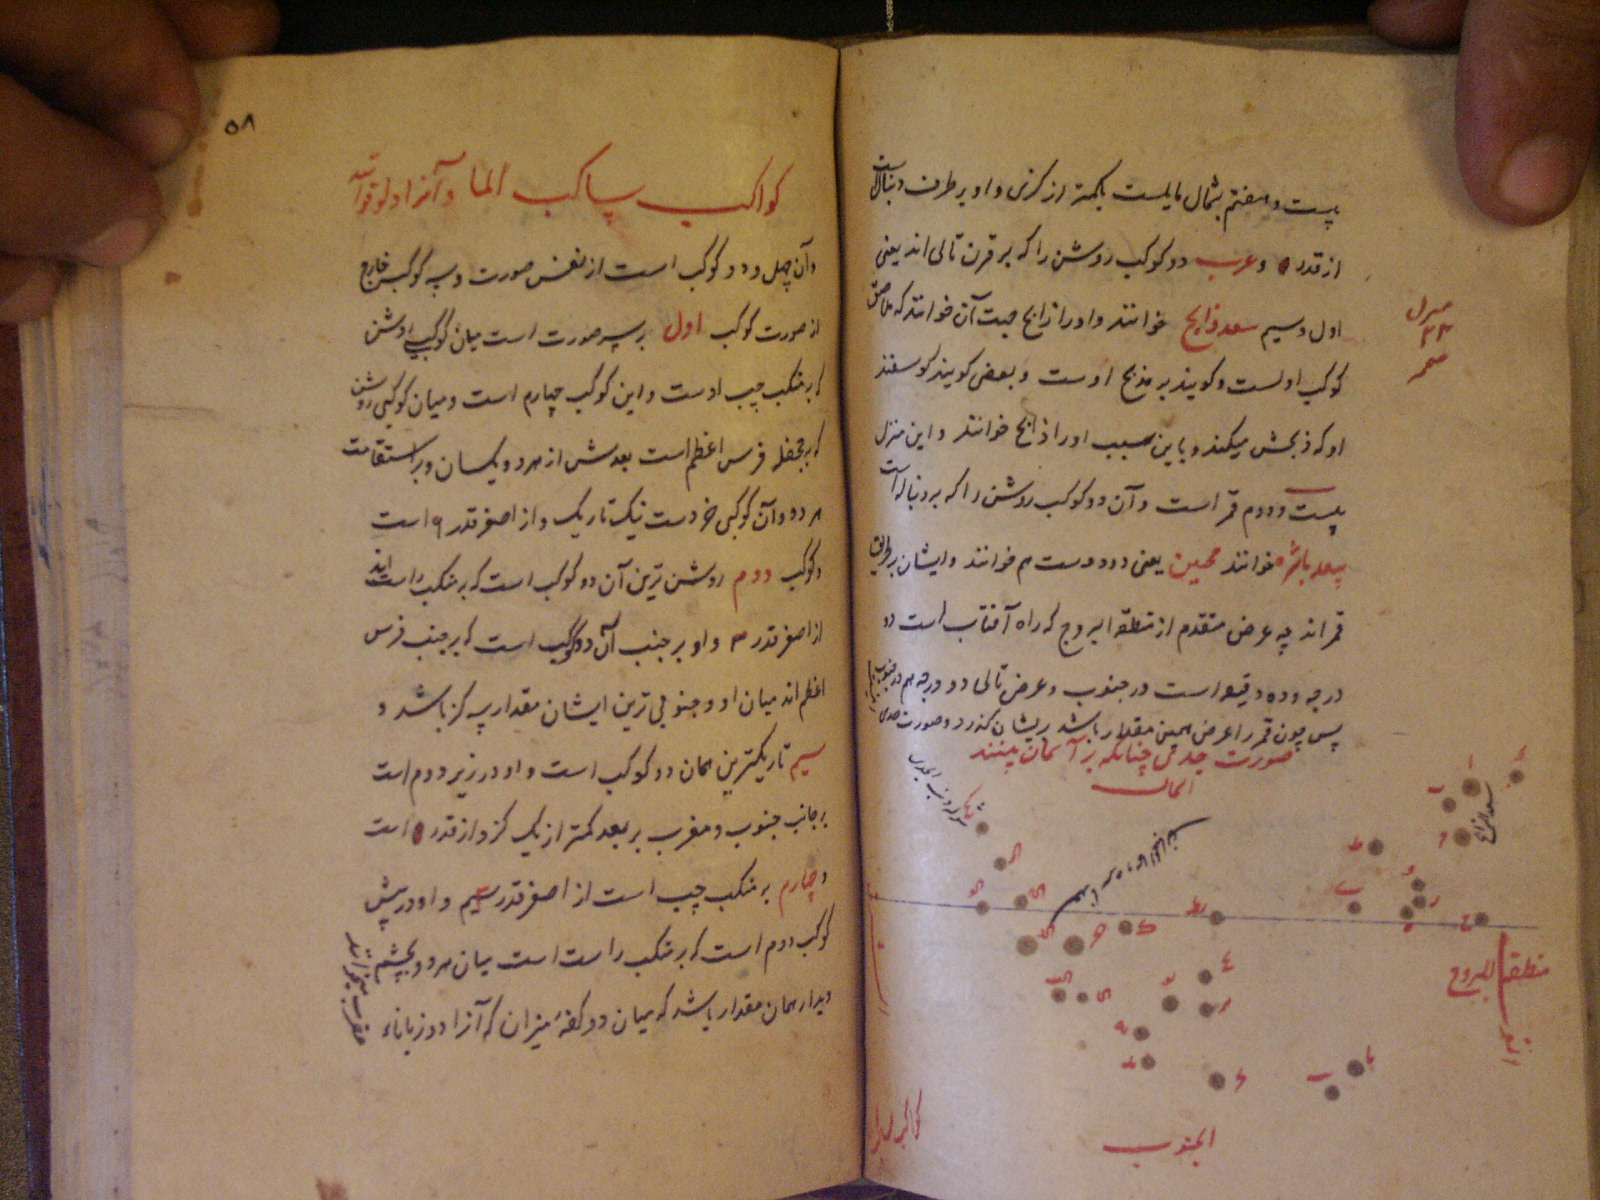 بیست و هفتم بشمال مایلست بکمتر از کزی و او بر طرف دنبال است
از قدر ۵ و عرب دو کوکب روشن را که بر قرن تالی اند یعنی
اول و سیم سعد ذابح خوانند و او را ذابح جهت آن خوانند که ملاصق
کوکب اولست و کویند بر مذبح اوست و بعضی کویند کوسفند
او که ذبحش میکند و باین سبب او را ذابح خوانند و این منزل
بیست و دوم قمر است و آن دو کوکب روشن را که بر دنباله است
سعد ناشره خوانند محبین یعنی دو دوست هم خوانند و ایشان بر طریق
قمر اند چه عرض متقدم از منطقه البروج که راه آفتاب است دو
درجه و ده دقیقه است در جنوب و عرض تالی دو درجه هم در جنوب
پس چون قمر را عرض همین مقدار باشد بریشان کذرد و صورت جدی
صورت جدی چنانکه بر آسمان بینند
الشمال
سعد الذابح
منطقة البروج
الجنوب
۵۸
کواکب ساکب الما و آنرا دلو
و آن چهل و دو کوکب است از نفس صورت و سه کوکب خارج
از صورت کوکب اول بر سر صورت است میان کوکبی روشن
که بر منکب چپ اوست و این کوکب چهارم است و میان کوکبی روشن
که بر جحفله فرس اعظم است بعدش از هر دو یکسان و بر استقامت
هر دو و آن کوکبی خردست نیک تاریک و از اصغر قدر ۴ است
و کوکب دوم روشن ترین آن دو کوکب است که بر منکب راست اند
از اصغر قدر ۳ و او بر جنب آن دو کوکب است که بر جنب فرس
اعظم اند میان او و جنوبی ترین ایشان مقدار سه کز باشد و
سیم تاریکترین همان دو کوکب است و او در زیر دوم است
بر جانب جنوب و مغرب بر بعد کمتر از یک کز و از قدر ۵ است
و چهارم بر منکب چپ است از اصغر قدر سیم و او در پیش
کوکب دوم است که بر منکب راست است میان هر دو بچشم
دیدار همان مقدار باشد که میان دو کفهٔ میزان که آنرا دو زباناء
عقرب میخوانند